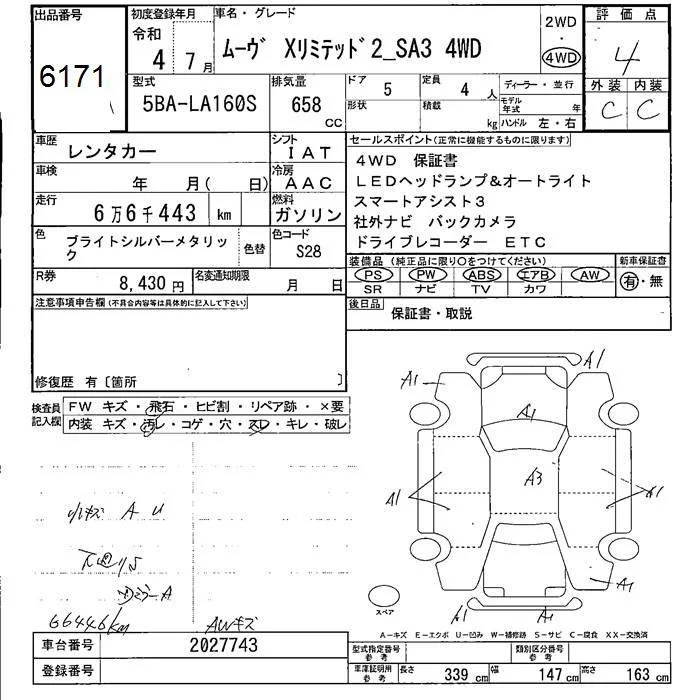 出品番号
6171
初度登録年月
令和
4年 7月
車名・グレード
ムーヴ Xリミテッド2_SA3 4WD
2WD
・
4WD
評価点
4
外装 内装
C C
型式
5BA-LA160S
排気量
658
CC
ドア
5
定員
4 人
形状
積載
kg
ディーラー・並行
モデル年式 年
ハンドル 左・右
車歴
レンタカー
シフト
IAT
車検
年 月( 日)
冷房
AAC
走行
6万6千443 km
燃料
ガソリン
色
ブライトシルバーメタリック
色替
色コード
S28
R券
8,430 円
名変通知期限
月 日
セールスポイント(正常に機能するものに限ります)
4WD 保証書
LEDヘッドランプ&オートライト
スマートアシスト3
社外ナビ バックカメラ
ドライブレコーダー ETC
装備品 (純正品に限り○をつけてください)
PS PW ABS エアB AW
SR ナビ TV カワ
新車保証書
有・無
後日品
保証書・取説
注意事項申告欄(不具合内容等は具体的に記入して下さい)
修復歴 有〔箇所 〕
検査員記入欄
FW キズ・飛石・ヒビ割・リペア跡・×要
内装 キズ・汚レ・コゲ・穴・スレ・キレ・破レ
小キズ A U
下回りS
ミラーA
66446km
AWキズ
A1
A1
A1
A3
A1
A1
A1
A1
A1
スペア
A-キズ E-エクボ U-凹み W-補修跡 S-サビ C-腐食 XX-交換済
車台番号
2027743
登録番号
型式指定番号
参考
類別区分番号
参考
車庫証明用
参考
長さ 339 cm
幅 147 cm
高さ 163 cm